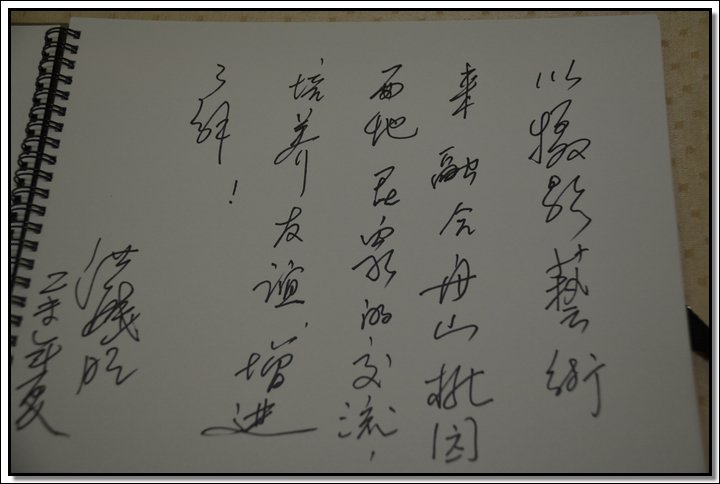 以摄影藝術
来融合舟山桃园
两地民眾的交流，
培养友谊、增进
了解！
洪
乙未年夏